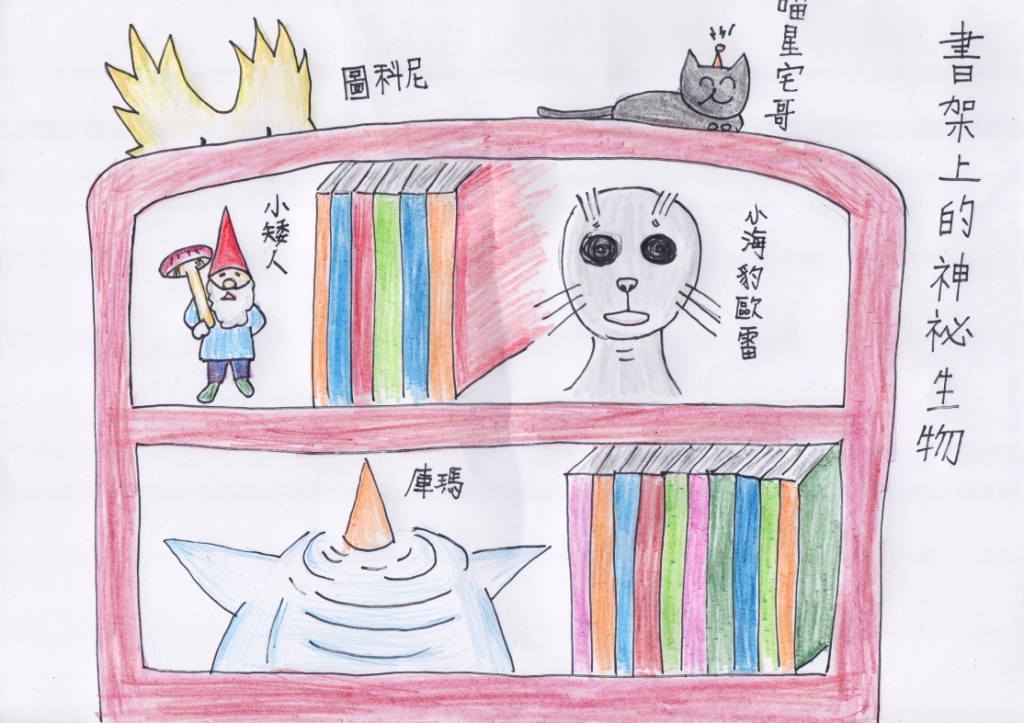 書架上的神祕生物
喵星宅哥
圖科尼
小海豹歐雷
小矮人
庫瑪